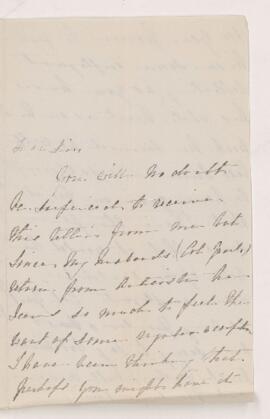 Dear Sir
You will no doubt
be surprised to receive
this letter from me but
since my husbands (Col.
return from he
seems so much to feel the
want of some regular occupa
I have been thinking that
perhaps you might have it